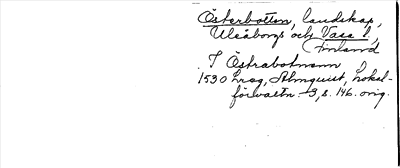 Österbotten, landskap,
Uleåborgs och Vasa l.,
Finland
I Östrabotnenn
1530 Lrag, Almquist, Lokal-
förvaltn. 3, s. 146. orig.